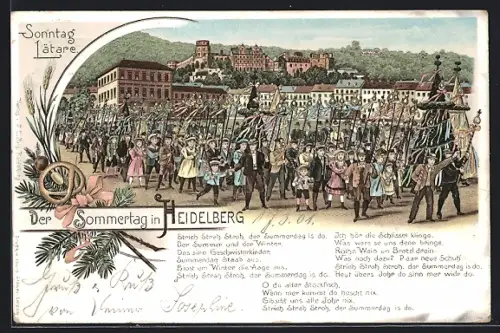 Sonntag
Lätare.
Der Sommertag in HEIDELBERG
Strieh Strah Stroh, der Summerdag is do.
Der Summer und der Winter,
Des sinn Geschwisterkinder
Summerdag Staab aus,
Blost em Winter die Aage aus.
Strieh Strah Stroh, der Summerdag is do.
Ich hör die Schlüssel klinge,
Was werre se uns denn bringe,
Rothe Wein un Bretzel drein.
Was noch dazu? Paar neue Schuh!
Strieh Strah Stroh, der Summerdag is do.
Heut übers Johr do sinn mer widder do.
O du alter Stockfisch,
Wann mer kummt do hoscht nix.
Gibscht uns alle Johr nix.
Strieh Strah Stroh, der Summerdag is do.
Gruß u. Kuß
von Deiner Josephine